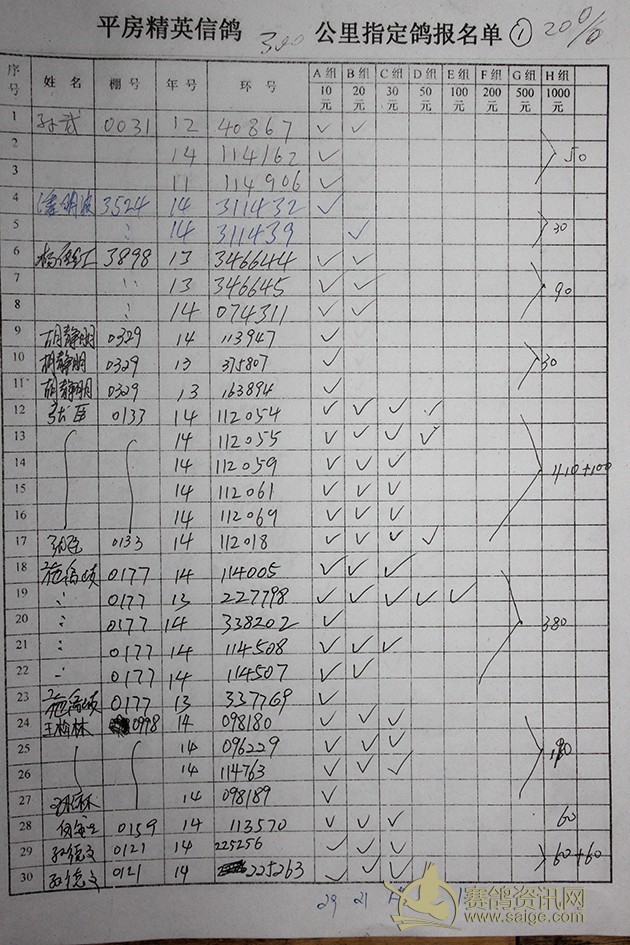 平房精英信鸽 300 公里指定鸽报名单 ① 20%
序号 姓名 棚号 年号 环号 A组10元 B组20元 C组30元 D组50元 E组100元 F组200元 G组500元 H组1000元
1 孙武 0031 12 40867 ✓ ✓
2 14 114162 ✓ 50
3 11 114906 ✓
4 潘明波 3524 14 311432 ✓
5 〃 14 311439 ✓ 30
6 3898 13 346644 ✓ ✓
7 〃 13 346645 ✓ ✓ 90
8 〃 14 074311 ✓ ✓
9 胡静明 0329 14 113947 ✓
10 胡静明 0329 13 375807 ✓ 30
11 胡静明 0329 13 163894 ✓
12 张臣 0133 14 112054 ✓ ✓ ✓ ✓
13 14 112055 ✓ ✓ ✓ ✓
14 14 112059 ✓ ✓ ✓ 410+100
15 14 112061 ✓ ✓ ✓
16 14 112069 ✓ ✓ ✓
17 0133 14 112018 ✓ ✓ ✓ ✓
18 0177 14 114005 ✓ ✓ ✓
19 〃 0177 13 227798 ✓ ✓ ✓ ✓ ✓
20 〃 0177 14 338202 ✓ 380
21 〃 0177 14 114508 ✓ ✓ ✓
22 〃 0177 14 114507 ✓ ✓
23 0177 13 337769 ✓
24 王柏林 0998 14 098180 ✓ ✓ ✓
25 14 096229 ✓ ✓ ✓
26 14 114763 ✓ ✓ ✓
27 14 098189 ✓
28 0159 14 113570 ✓ ✓ ✓ 60
29 孙德文 0121 14 225256 ✓ ✓ ✓ 60+60
30 孙德文 0121 14 225263 ✓ ✓ ✓
29 21
赛鸽资讯网
www.saige.com